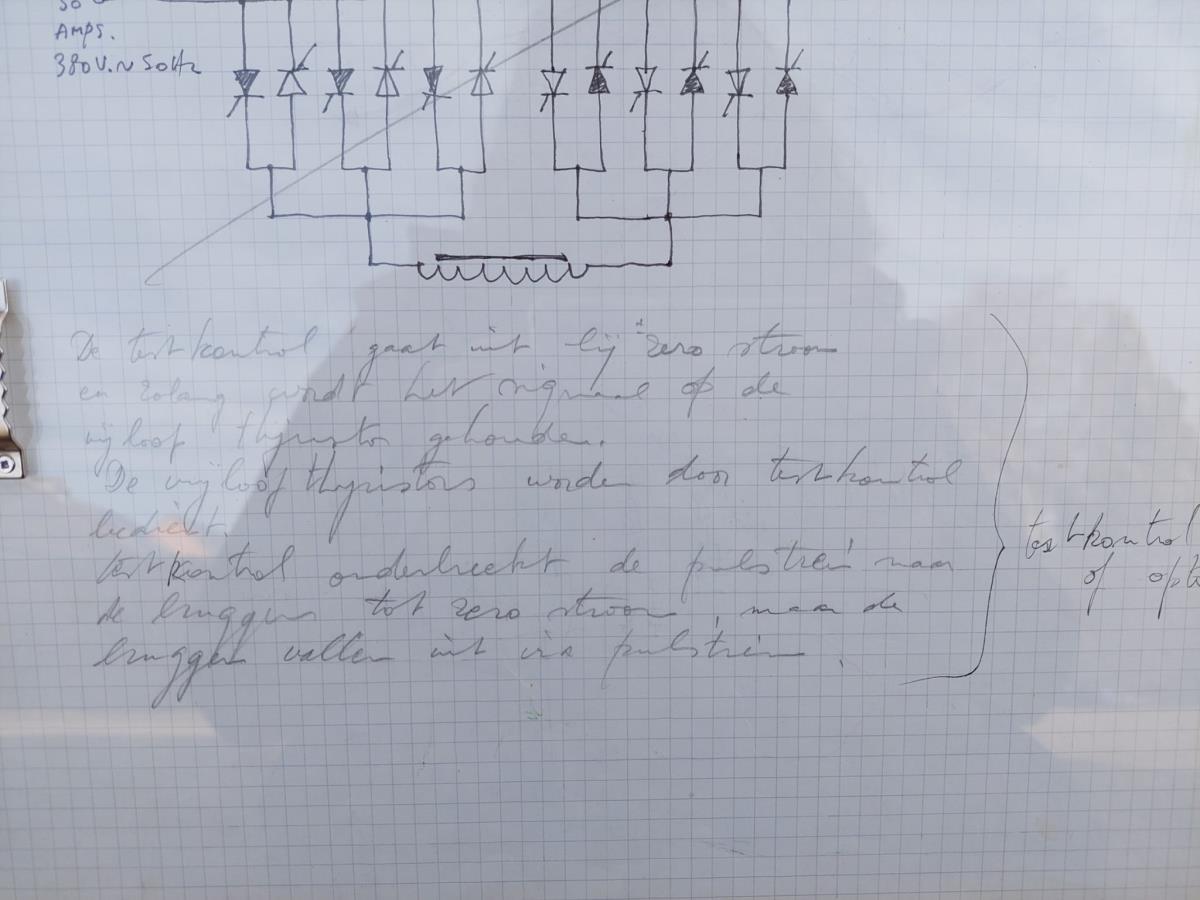 50
AMPS.
380V.~50Hz
De testkontrol gaat uit bij zero stroom
en zolang wordt het signaal op de
vijloop thyristor gehouden.
De vrijloop thyristors worden door testkontrol
bedient.
testkontrol onderbreekt de pulstrein naar
de bruggen tot zero stroom, maar de
bruggen vallen uit via pulstrein.
testkontrol
of opt